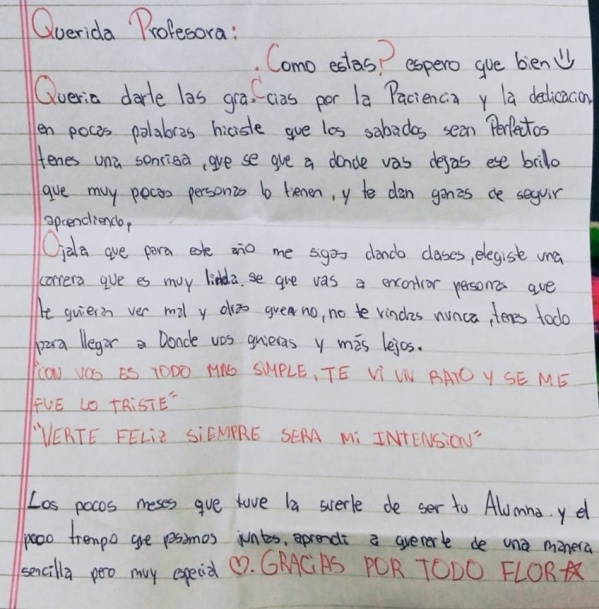 Querida Profesora:
.Como estas? espero que bien
Queria darle las gra.Ccias por la Paciencia y la dedicacion,
en pocas palabras hiciste que los sabados sean Perfectos
tenes una sonrisa, que se que a donde vas dejas ese brillo
que muy pocas personas lo tienen, y te dan ganas de seguir
aprendiendo,
Ojala que para este año me sigas dando clases, elegiste una
carrera que es muy linda, se que vas a encontrar persona que
te quieran ver mal y otras que no, no te rindas nunca, tenes todo
para llegar a Donde vos quieras y más lejos.
"CON VOS ES TODO MAS SIMPLE, TE VI UN RATO Y SE ME
FUE LO TRISTE"
"VERTE FELIZ SIEMPRE SERA MI INTENSION"
Los pocos meses que tuve la suerte de ser tu Alumna y el
poco tiempo que pasamos juntas, aprendi a quererte de una manera
sencilla pero muy especial ♡. GRACIAS POR TODO FLOR☆